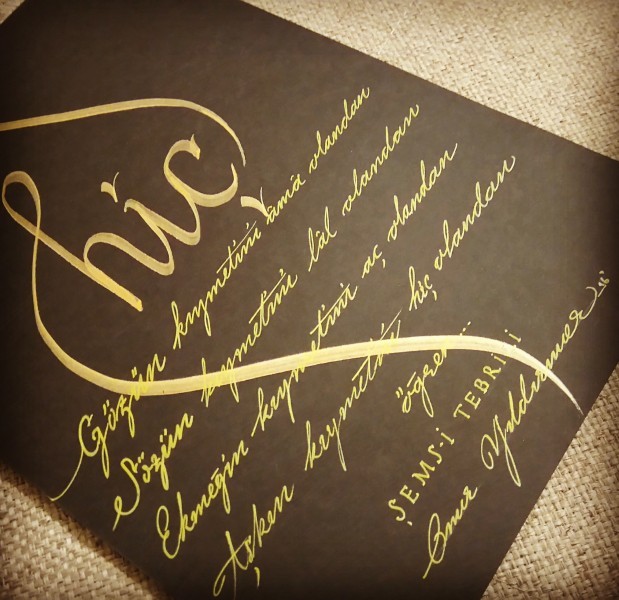 hiç
Gözün kıymetini âmâ olandan
Sözün kıymetini lâl olandan
Ekmeğin kıymetini aç olandan
Aşkın kıymetini hiç olandan
öğren...
ŞEMS-İ TEBRİZİ